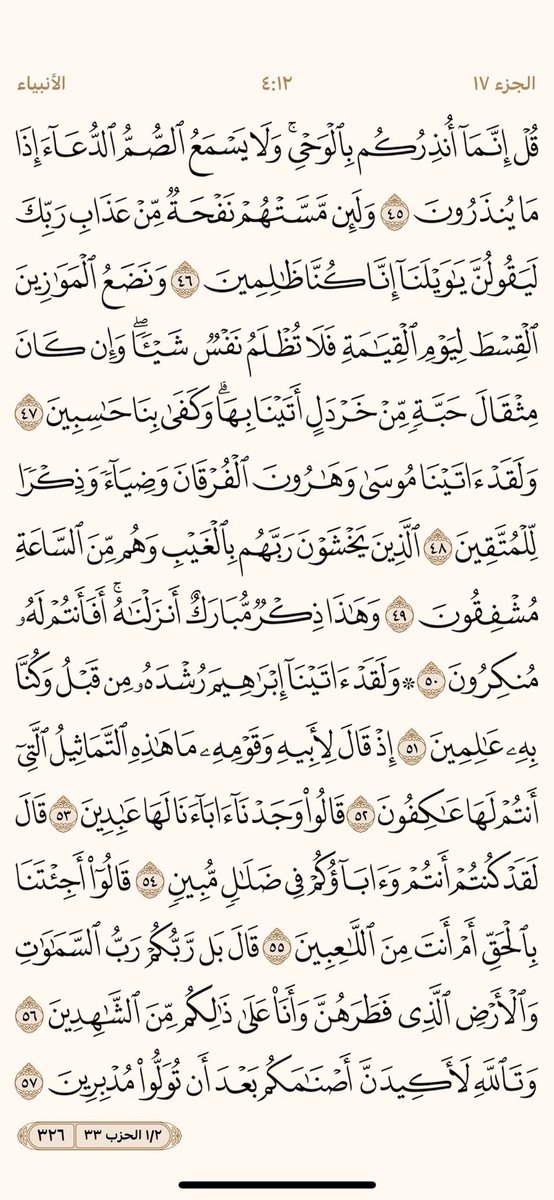 الجزء ١٧ ٤:١٢ الأنبياء
قُلْ إِنَّمَآ أُنذِرُكُم بِٱلْوَحْىِ ۚ وَلَا يَسْمَعُ ٱلصُّمُّ ٱلدُّعَآءَ إِذَا
مَا يُنذَرُونَ ٤٥ وَلَئِن مَّسَّتْهُمْ نَفْحَةٌ مِّنْ عَذَابِ رَبِّكَ
لَيَقُولُنَّ يَٰوَيْلَنَآ إِنَّا كُنَّا ظَٰلِمِينَ ٤٦ وَنَضَعُ ٱلْمَوَٰزِينَ
ٱلْقِسْطَ لِيَوْمِ ٱلْقِيَٰمَةِ فَلَا تُظْلَمُ نَفْسٌ شَيْـًٔا ۖ وَإِن كَانَ
مِثْقَالَ حَبَّةٍ مِّنْ خَرْدَلٍ أَتَيْنَا بِهَا ۗ وَكَفَىٰ بِنَا حَٰسِبِينَ ٤٧
وَلَقَدْ ءَاتَيْنَا مُوسَىٰ وَهَٰرُونَ ٱلْفُرْقَانَ وَضِيَآءً وَذِكْرًا
لِّلْمُتَّقِينَ ٤٨ ٱلَّذِينَ يَخْشَوْنَ رَبَّهُم بِٱلْغَيْبِ وَهُم مِّنَ ٱلسَّاعَةِ
مُشْفِقُونَ ٤٩ وَهَٰذَا ذِكْرٌ مُّبَارَكٌ أَنزَلْنَٰهُ ۚ أَفَأَنتُمْ لَهُۥ
مُنكِرُونَ ٥٠ ۞ وَلَقَدْ ءَاتَيْنَآ إِبْرَٰهِيمَ رُشْدَهُۥ مِن قَبْلُ وَكُنَّا
بِهِۦ عَٰلِمِينَ ٥١ إِذْ قَالَ لِأَبِيهِ وَقَوْمِهِۦ مَا هَٰذِهِ ٱلتَّمَاثِيلُ ٱلَّتِىٓ
أَنتُمْ لَهَا عَٰكِفُونَ ٥٢ قَالُوا۟ وَجَدْنَآ ءَابَآءَنَا لَهَا عَٰبِدِينَ ٥٣ قَالَ
لَقَدْ كُنتُمْ أَنتُمْ وَءَابَآؤُكُمْ فِى ضَلَٰلٍ مُّبِينٍ ٥٤ قَالُوٓا۟ أَجِئْتَنَا
بِٱلْحَقِّ أَمْ أَنتَ مِنَ ٱللَّٰعِبِينَ ٥٥ قَالَ بَل رَّبُّكُمْ رَبُّ ٱلسَّمَٰوَٰتِ
وَٱلْأَرْضِ ٱلَّذِى فَطَرَهُنَّ وَأَنَا۠ عَلَىٰ ذَٰلِكُم مِّنَ ٱلشَّٰهِدِينَ ٥٦
وَتَٱللَّهِ لَأَكِيدَنَّ أَصْنَٰمَكُم بَعْدَ أَن تُوَلُّوا۟ مُدْبِرِينَ ٥٧
١/٢ الحزب ٣٣ ٣٢٦